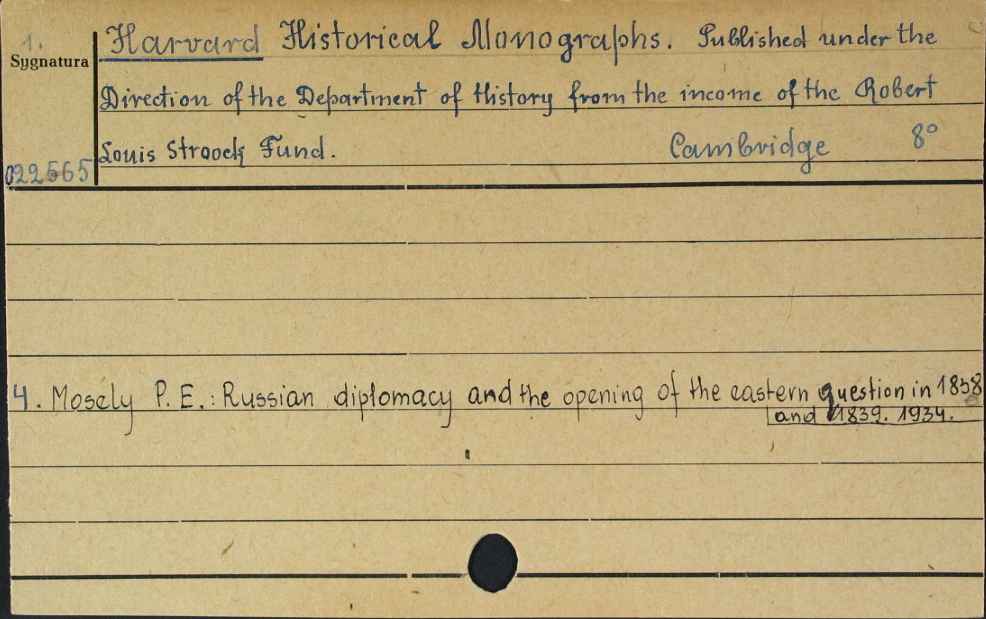 1.
Sygnatura
Harvard Historical Monographs. Published under the
Direction of the Department of History from the income of the Robert
Louis Stroock Fund. Cambridge 8°
022565
4. Mosely P. E.: Russian diplomacy and the opening of the eastern question in 1838
and 1839. 1934.